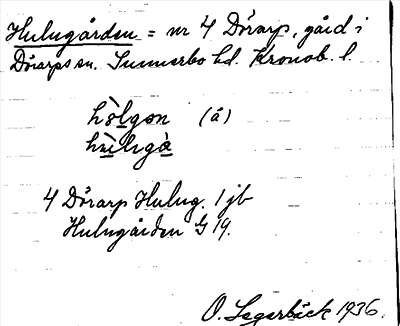 Hulugården = nr 4 Dörarp, gård i
Dörarps sn. Sunnerbo hd. Kronob. l.
hòlgon (å)
hùluga
4 Dörarp Hulug. 1 jb
Hulugården G 19.
O. Segerbäck 1936.